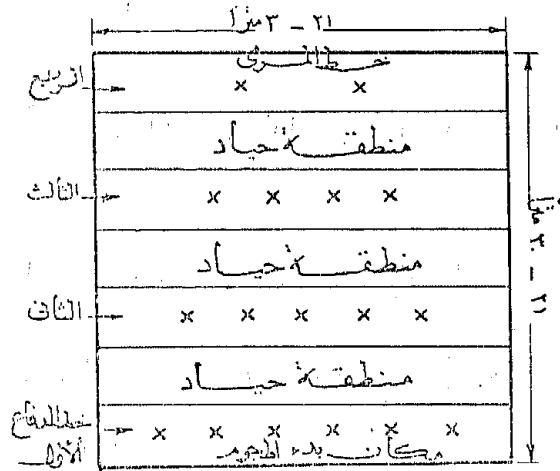 ٢١ - ٣٠ مترا
خط المرمى
الربع
منطقة حياد
الثالث
منطقة حياد
الثاني
منطقة حياد
خط الدفاع الأول
مكان بدء الهجوم
٢١ - ٣٠ مترا